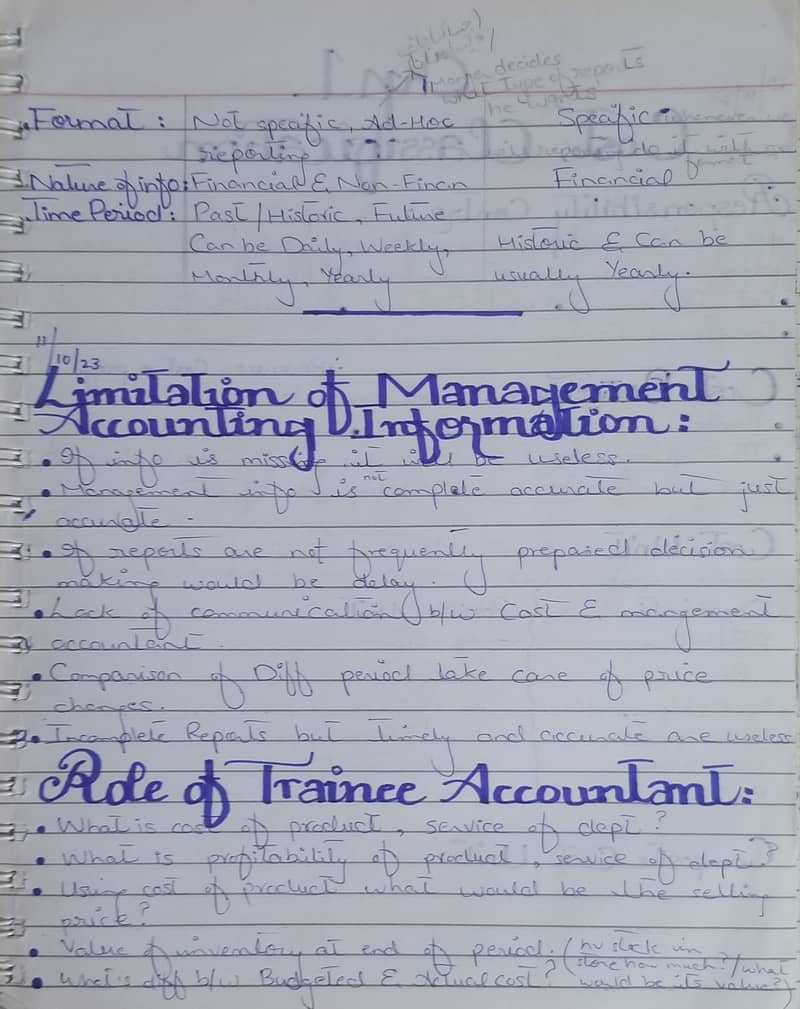 Manager decides
what Type of reports
he wants
Format : Not specific, Ad-Hoc Specific
reporting i.e reporter do it with a format
Nature of info: Financial & Non-Finan Financial
Time Period: Past / Historic, Future
Can be Daily, Weekly, Historic & Can be
Monthly, Yearly usually Yearly.
11/
10/23
Limitation of Management
Accounting Information:
• If info is missing it will be useless.
• Management info is not complete accurate but just
accurate.
• If reports are not frequently prepared decision
making would be delay.
• Lack of communication b/w Cost & mangement
accountant.
• Comparison of Diff period take care of price
changes.
• Incomplete Reports but Timely and accurate are useless
Role of Trainee Accountant:
• What is cost of product, service of dept?
• What is profitability of product, service of dept?
• Using cost of product what would be the selling
price?
• Value of inventory at end of period. (hv stock in
store how much?/what
• What's diff b/w Budgeted & Actual cost? would be its value?)